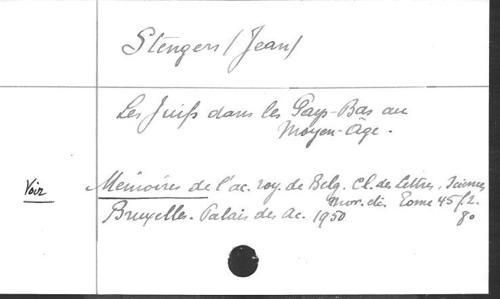 Stengers (Jean)
Les Juifs dans les Pays-Bas au
Moyen-Âge.
Voir Mémoires de l'ac. roy. de Belg. Cl. des Lettres, Sciences
mor. etc. Tome 45 f. 2.
Bruxelles. Palais des Ac. 1950 8°